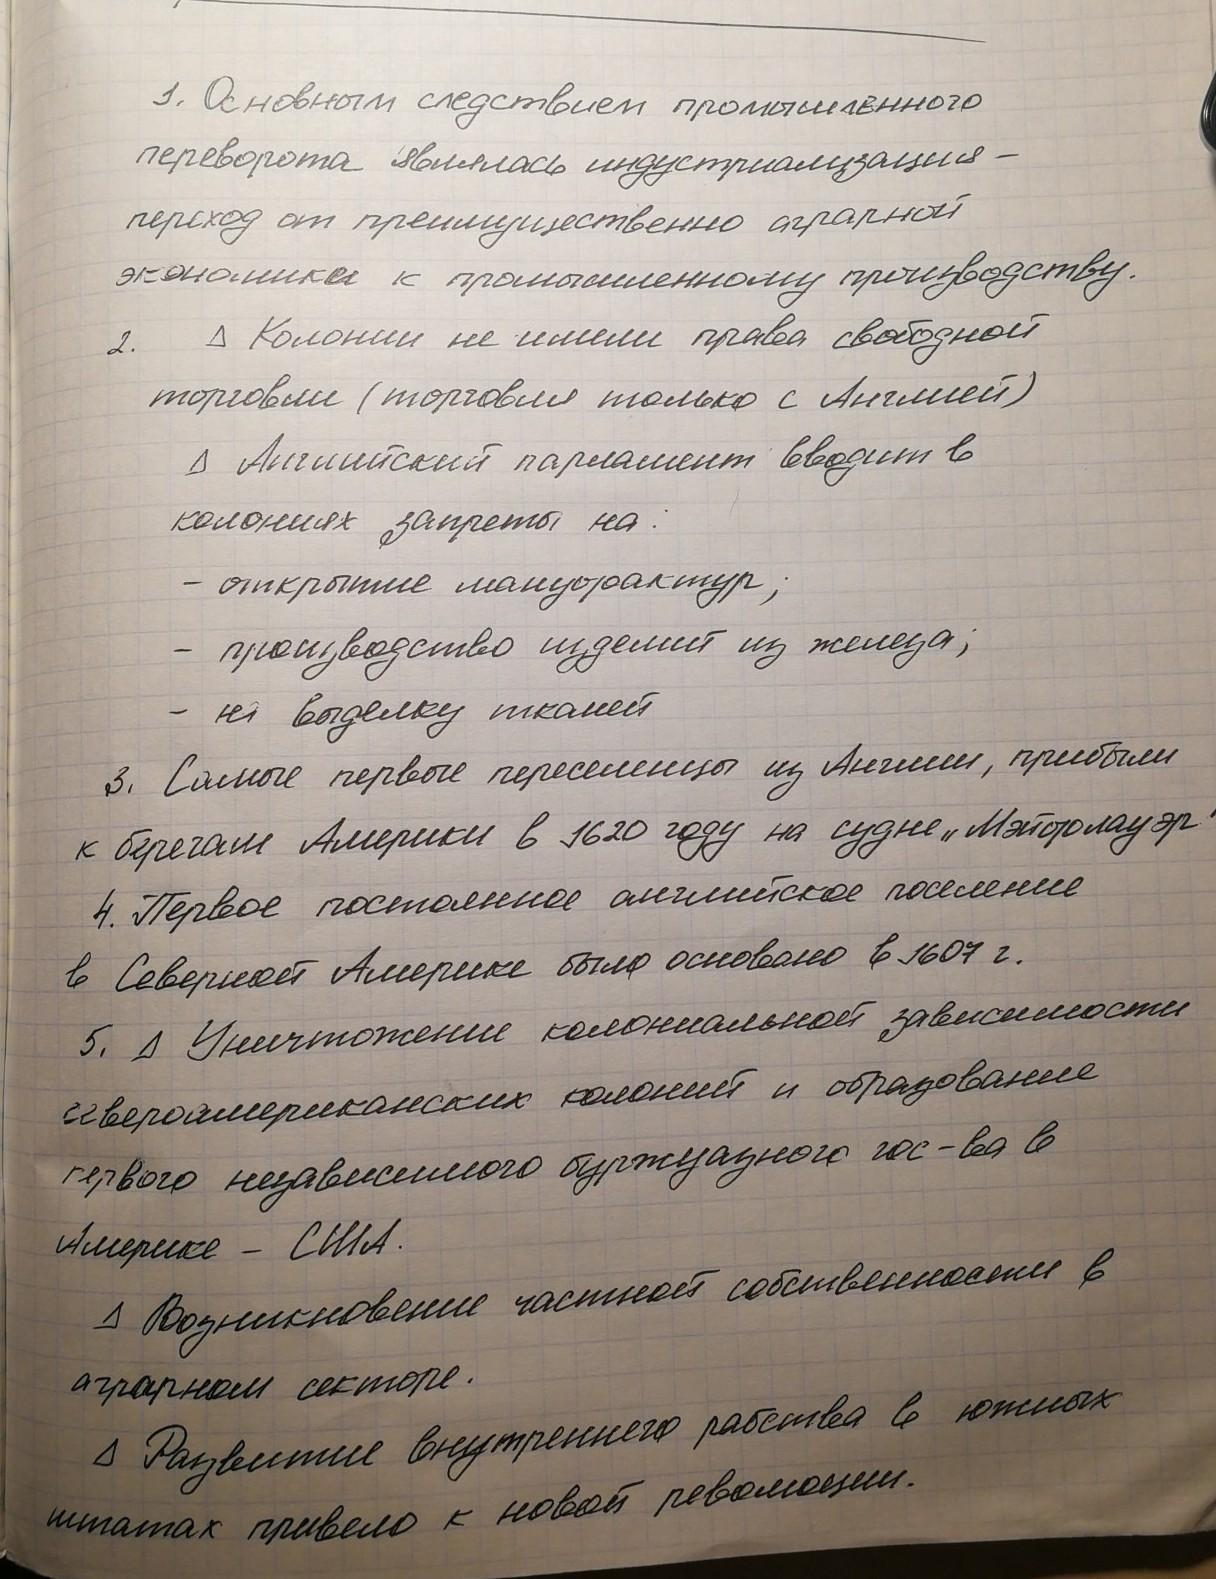 1. Основным следствием промышленного
переворота являлась индустриализация –
переход от преимущественно аграрной
экономики к промышленному производству.
2. Δ Колонии не имели права свободной
торговли (торговля только с Англией)
Δ Английский парламент вводит в
колониях запреты на:
– открытие мануфактур;
– производство изделий из железа;
– на выделку тканей
3. Самые первые переселенцы из Англии, прибыли
к берегам Америки в 1620 году на судне „Мэйфлауэр"
4. Первое постоянное английское поселение
в Северной Америке было основано в 1607 г.
5. Δ Уничтожение колониальной зависимости
североамериканских колоний и образование
первого независимого буржуазного гос-ва в
Америке – США.
Δ Возникновение частной собственности в
аграрном секторе.
Δ Развитие внутреннего рабства в южных
штатах привело к новой революции.